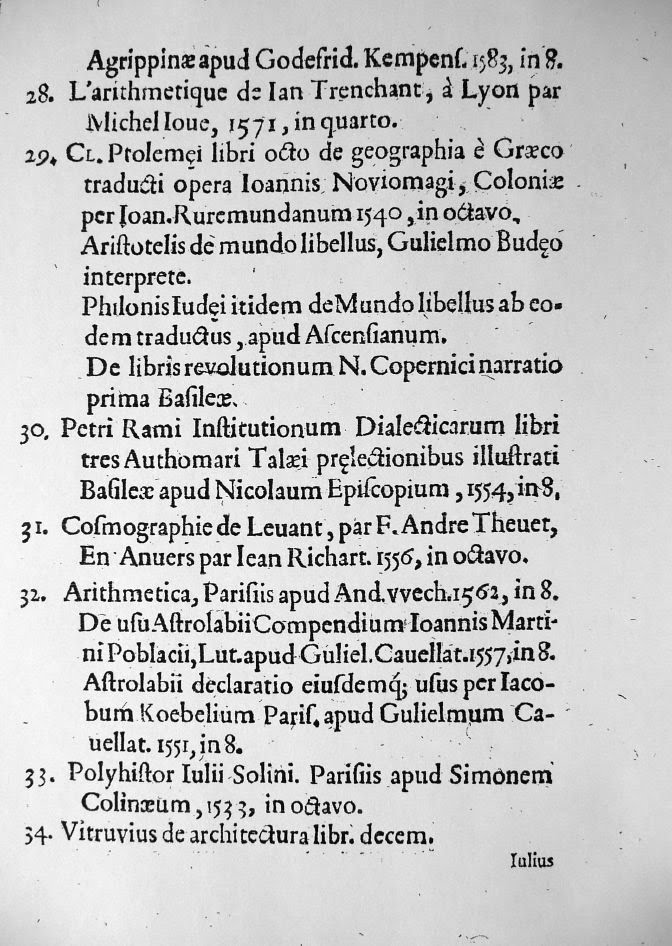 Agrippinæ apud Godefrid. Kempenſ. 1583, in 8.
28. L'arithmetique de Ian Trenchant, à Lyon par
Michel Ioue, 1571, in quarto.
29. CL. Ptolemęi libri octo de geographia è Græco
traducti opera Ioannis Noviomagi, Coloniæ
per Ioan. Ruremundanum 1540, in octavo.
Ariſtotelis de mundo libellus, Gulielmo Budęo
interprete.
Philonis Iudęi itidem de Mundo libellus ab eo-
dem traductus, apud Aſcenſianum.
De libris revolutionum N. Copernici narratio
prima Baſileæ.
30. Petri Rami Inſtitutionum Dialecticarum libri
tres Authomari Talæi pręlectionibus illuſtrati
Baſileæ apud Nicolaum Epiſcopium, 1554, in 8.
31. Coſmographie de Leuant, par F. Andre Theuet,
En Anuers par Iean Richart. 1556, in octavo.
32. Arithmetica, Pariſiis apud And. vvech. 1562, in 8.
De uſu Aſtrolabii Compendium Ioannis Marti-
ni Poblacii, Lut. apud Guliel. Cauellat. 1557, in 8.
Aſtrolabii declaratio eiuſdemq́; uſus per Iaco-
bum Koebelium Pariſ. apud Gulielmum Ca-
uellat. 1551, in 8.
33. Polyhiſtor Iulii Solini. Pariſiis apud Simonem
Colinæum, 1533, in octavo.
34. Vitruvius de architectura libr. decem.
Iulius